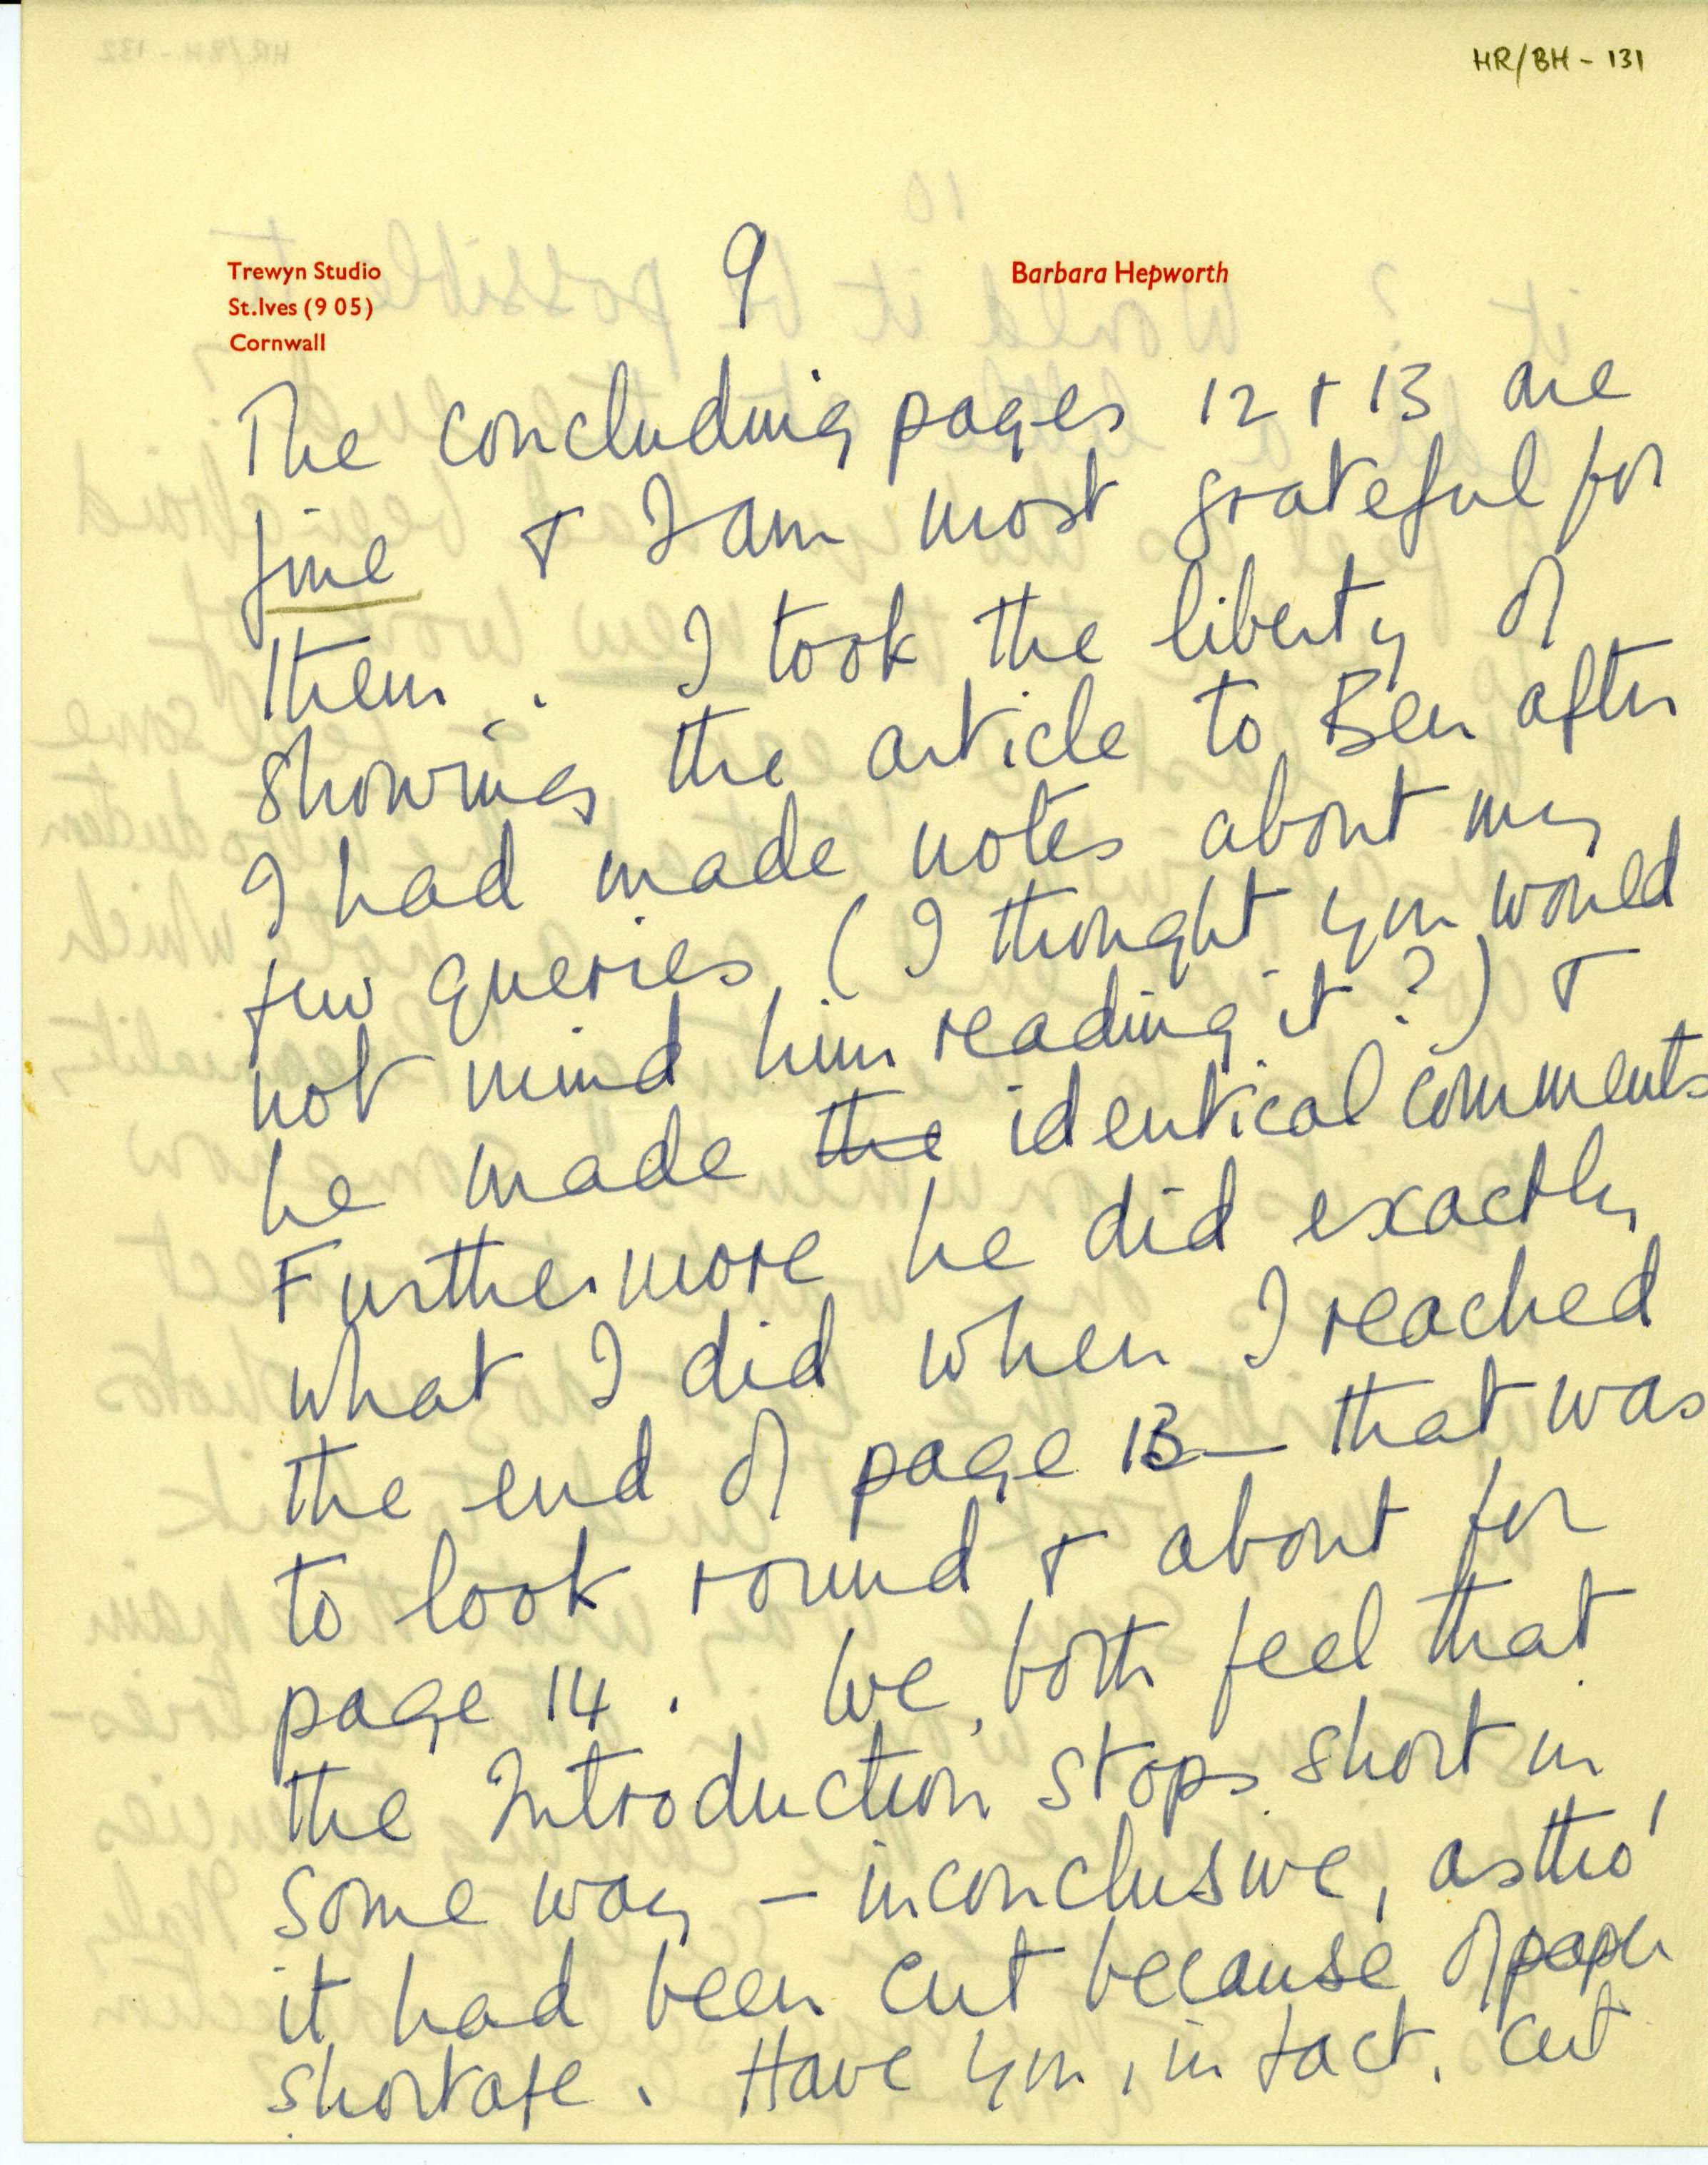 HR/BH - 131
9
Trewyn Studio
St.Ives (9 05)
Cornwall
Barbara Hepworth
The concluding pages 12 + 13 are
fine + I am most grateful for
them. I took the liberty of
showing the article to Ben after
I had made notes about my
few queries (I thought you would
not mind him reading it?) +
he made the identical comments
Furthermore he did exactly
what I did when I reached
the end of page 13 — that was
to look round + about for
page 14. We both feel that
the Introduction stops short in
some way – inconclusive, as tho'
it had been cut because of paper
shortage. Have you, in fact, cut